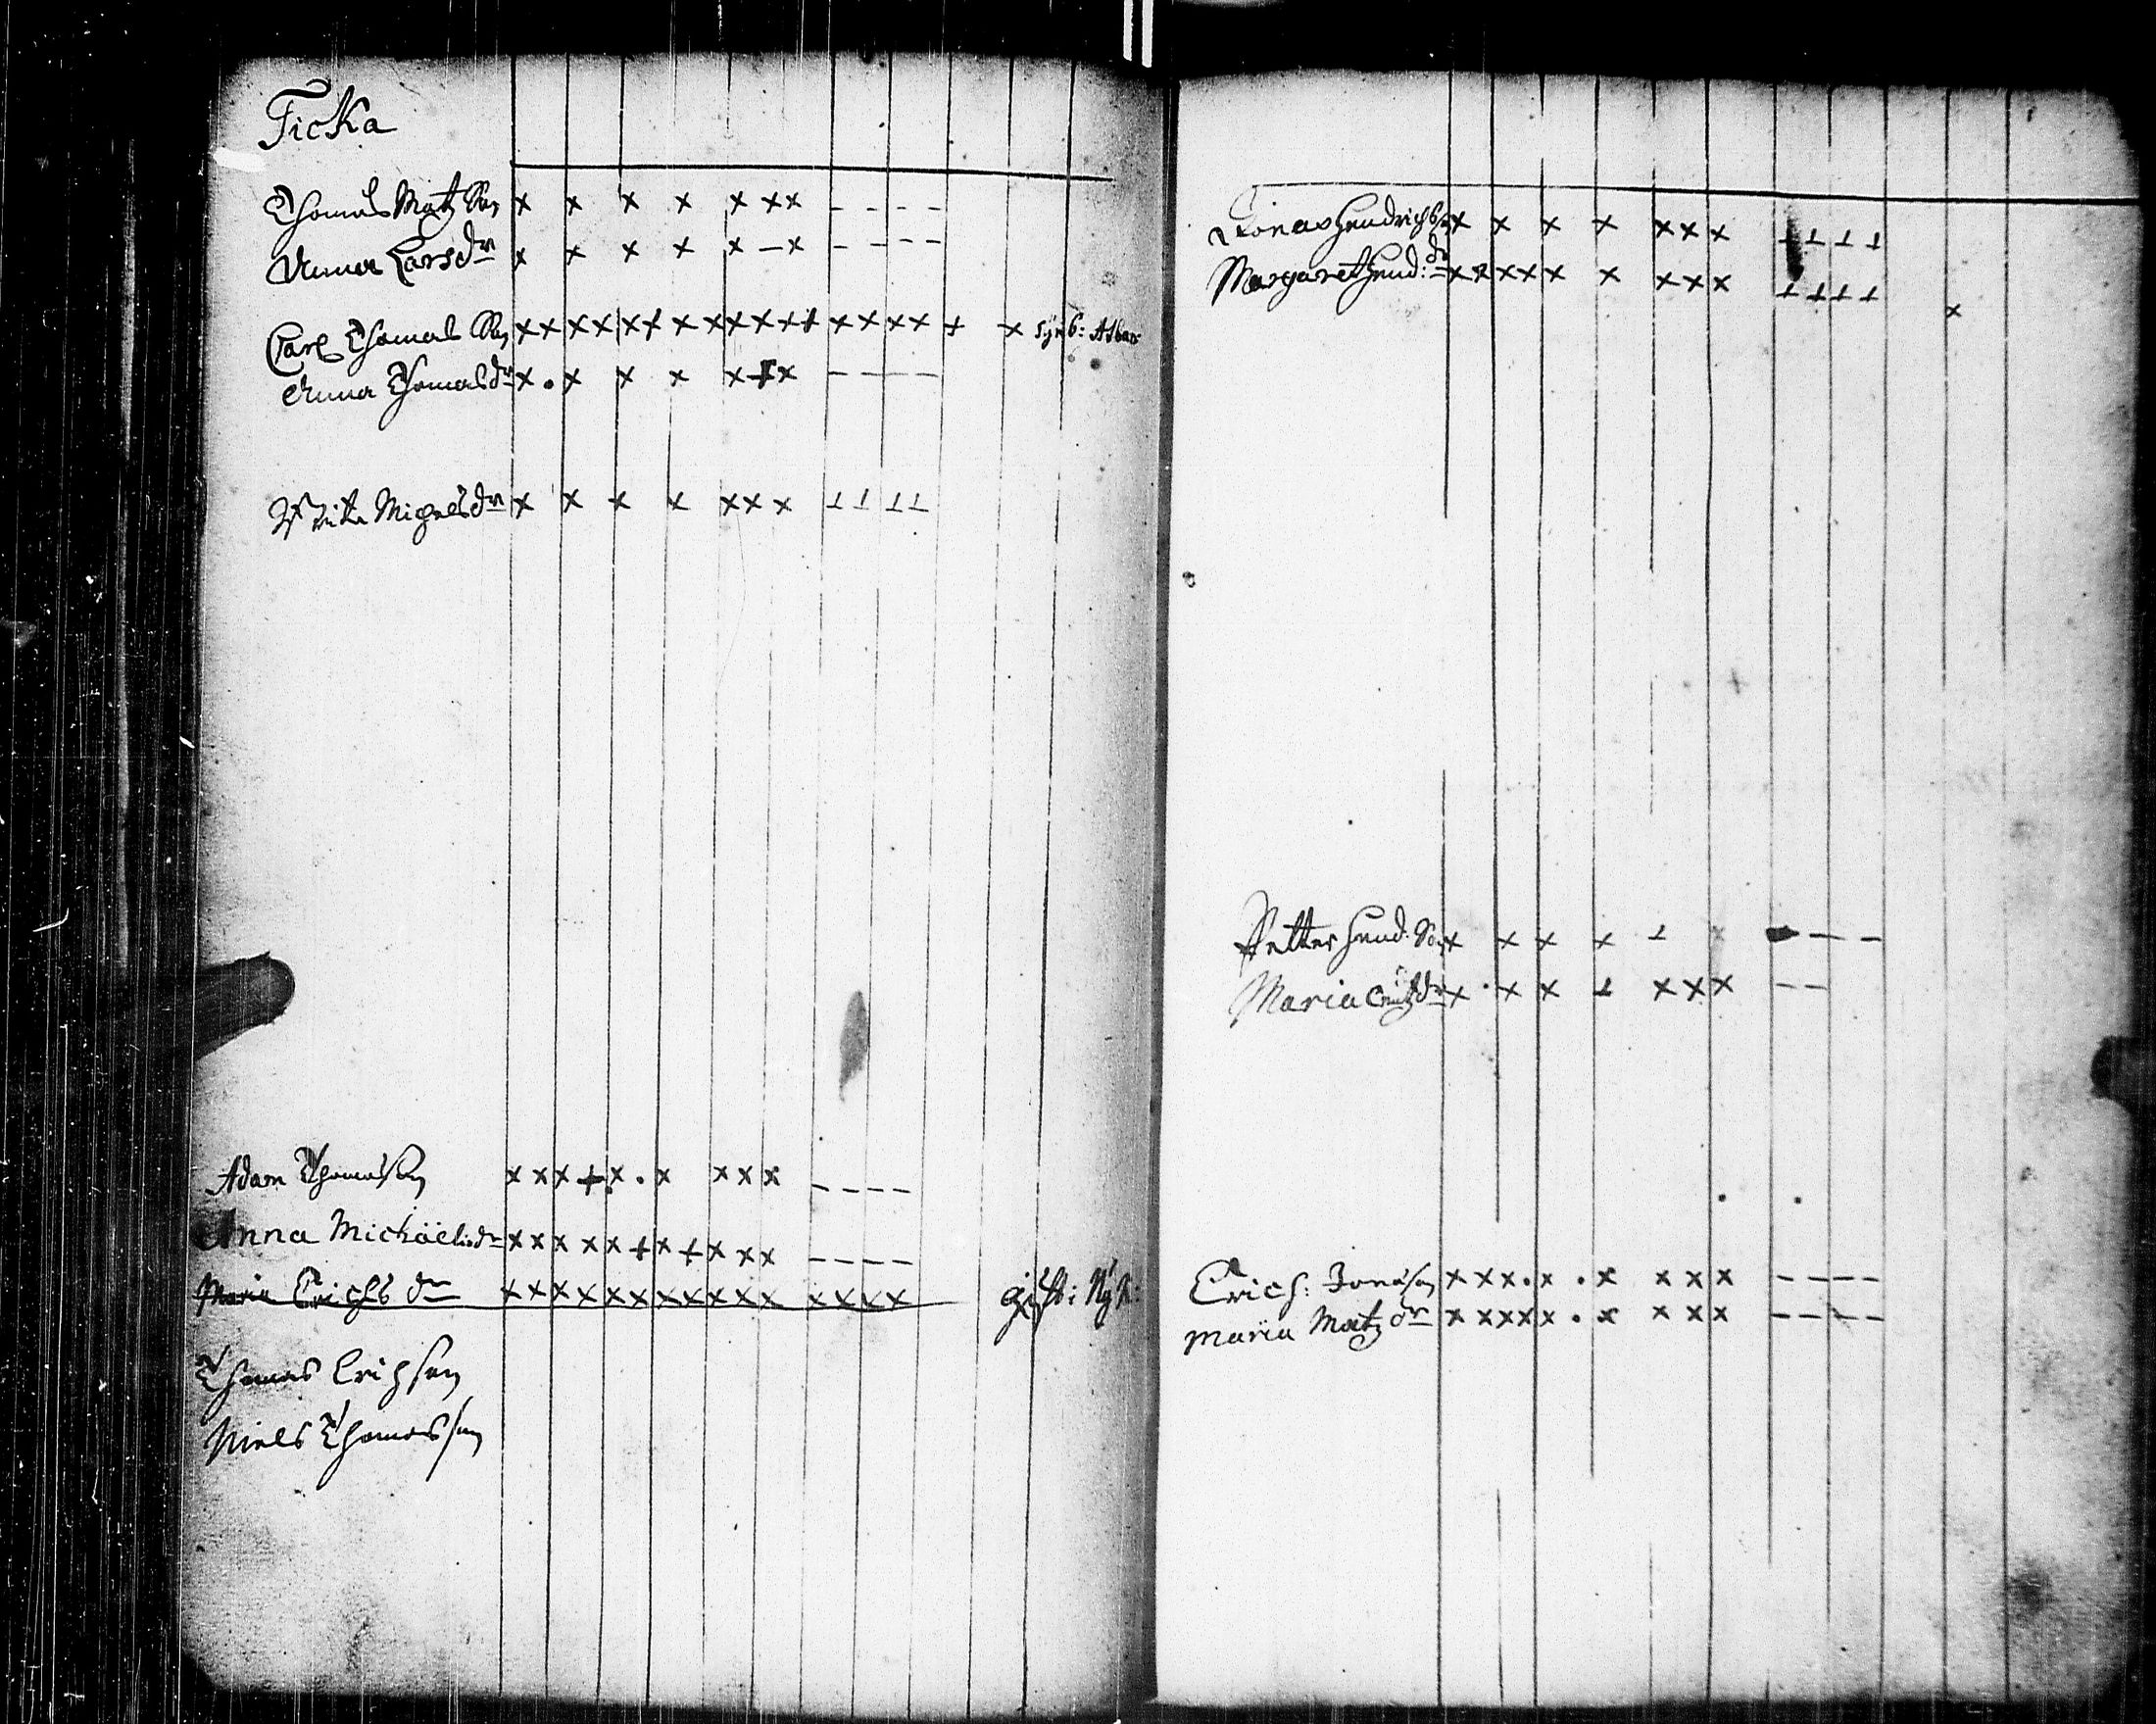 Ficka
Thomas Matz Son x x x x x x x - - - -
Anna Larsdr x x x x x - x - - - -
Carl Thomas Son x x x x x x x x x x x + x x x x + x
Anna Thomasdr x . x x x x + x - - - -
Michelsdr x x x x x x x ⊥ ⊥ ⊥ ⊥
Adam Thomasson x x x + x . x x x x - - - -
Anna Michäelisdr x x x x x + x + x x x - - - -
Maria Erichs dr x x x x x x x x x x x x x x x gift: Nyk:
Thomas Erichson
Niels Thomasson
Jonas Hendrichs x x x x x x x ⊥ ⊥ ⊥ ⊥
Margaret Hend: dr x x x x x x x x x ⊥ ⊥ ⊥ ⊥ x
Petter Hend: Son x x x x ⊥ x - - -
Maria dr x . x x ⊥ x x x - -
Erich: Jonason x x x . x . x x x x - - - -
Maria Matz dr x x x x x . x x x x - - - -